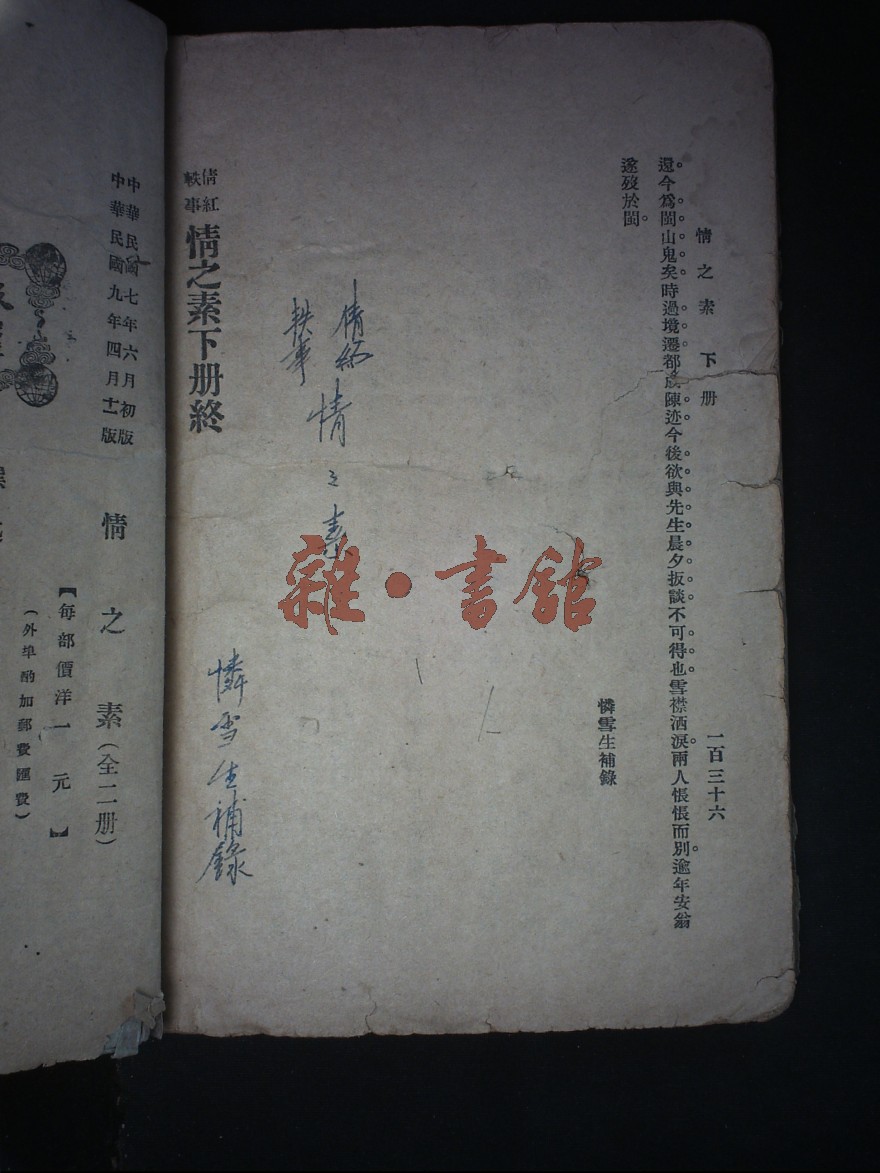 情之素　下册
一百三十六
還今爲閩山鬼矣時過境遷都成陳迹今後欲與先生晨夕扳談不可得也雪襟洒淚兩人悵悵而別逾年安翁
遂歿於閩。
憐雪生補錄
倩紅
軼事
情之素
憐雪生補錄
雜·書館
倩紅
軼事
情之素下册終
中華民國七年六月初版
中華民國九年四月十一版
情之素（全二册）
【每部價洋一元】
（外埠酌加郵費匯費）